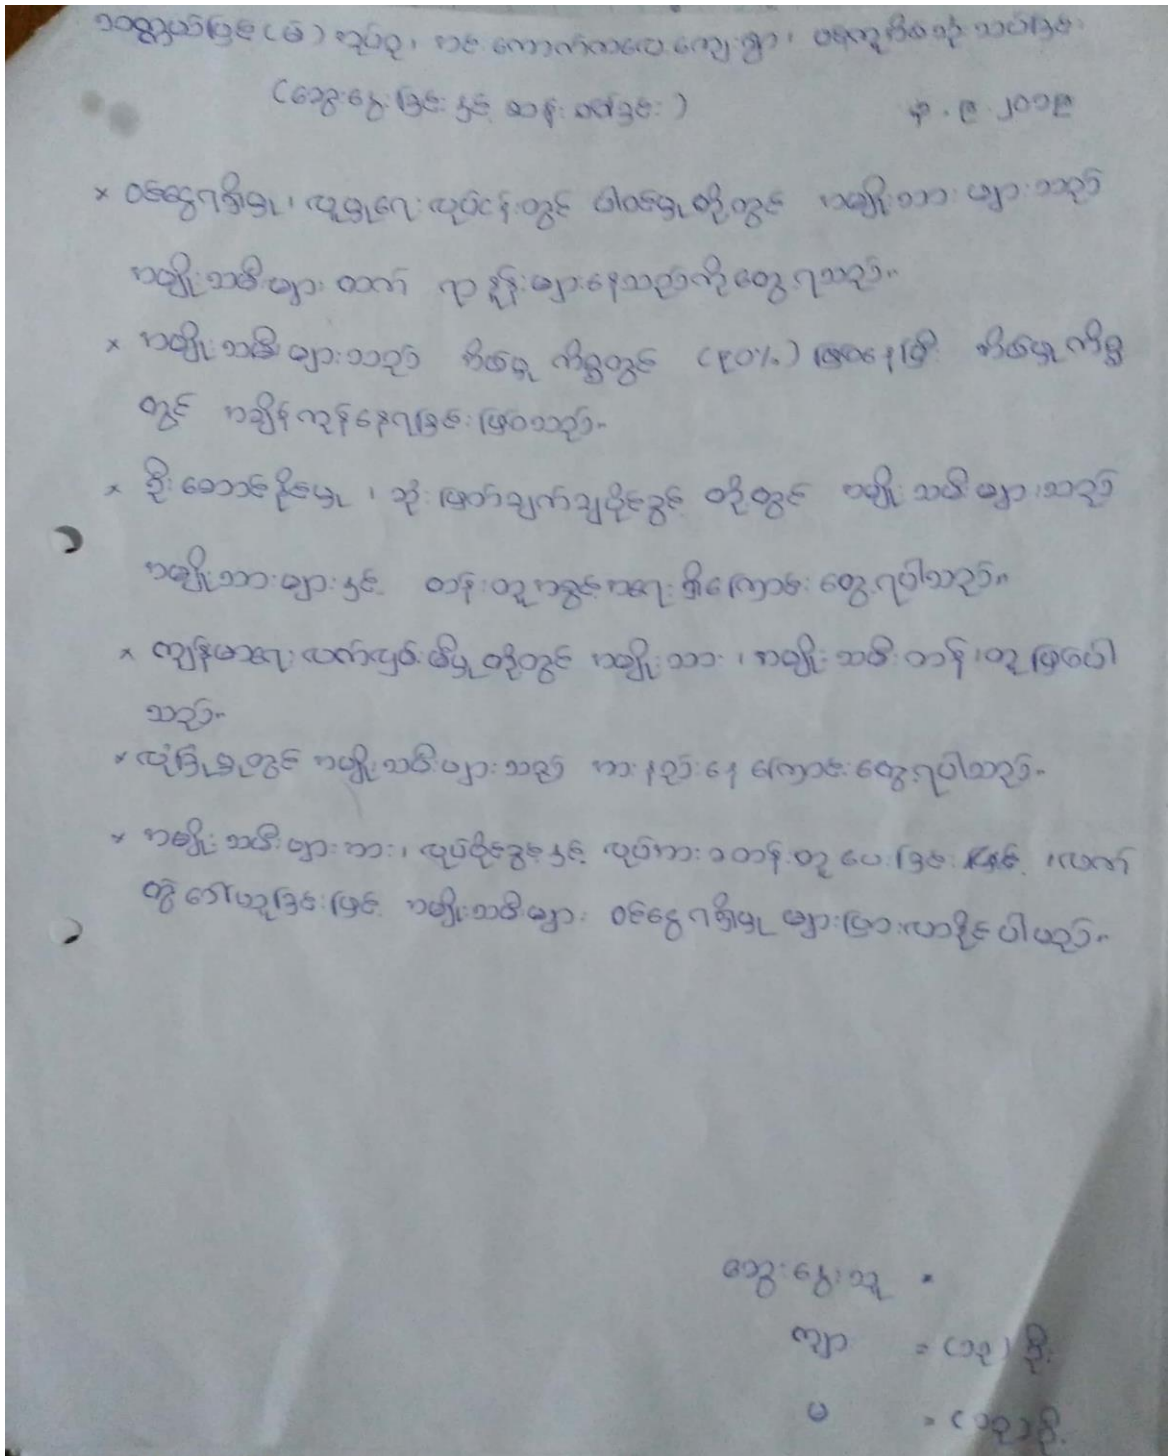 (ဆွေးနွေးခြင်း နှင့် ဆန်းစစ်ခြင်း)
၉.၂၀၁၉
× ဝင်ငွေရရှိမှု၊ လူမှုရေးလုပ်ငန်းတွင် ပါဝင်မှုတို့တွင် အမျိုးသားများသည်
အမျိုးသမီးများ ထက် ရာနှုန်းများနေသည်ကိုတွေ့ရသည်။
× အမျိုးသမီးများသည် အိမ်မှုကိစ္စတွင် (၉၀%) ဖြစ်နေပြီး အိမ်မှုကိစ္စ
တွင် အချိန်ကုန်နေရခြင်းဖြစ်သည်။
× ဦးဆောင်နိုင်မှု၊ ဆုံးဖြတ်ချက်ချပိုင်ခွင့် တို့တွင် အမျိုးသမီးများသည်
အမျိုးသားများနှင့် တန်းတူအခွင့်အရေးရှိကြောင်း တွေ့ရပါသည်။
× ကျန်းမာရေးလက်လှမ်းမီမှုတို့တွင် အမျိုးသား၊ အမျိုးသမီးတန်းတူဖြစ်ပါ
သည်။
× လုံခြုံမှုတွင် အမျိုးသမီးများသည် အားနည်းနေကြောင်းတွေ့ရပါသည်။
× အမျိုးသမီးများအား၊ လုပ်ပိုင်ခွင့်နှင့် လုပ်အားခတန်းတူပေးခြင်း၊ လက်
တွဲခေါ်ယူခြင်းဖြင့် အမျိုးသမီးများ ဝင်ငွေရရှိမှုများပြားလာနိုင်ပါမည်။
ဆွေးနွေးသူ
ကျား = ဦး
မ = ဦး